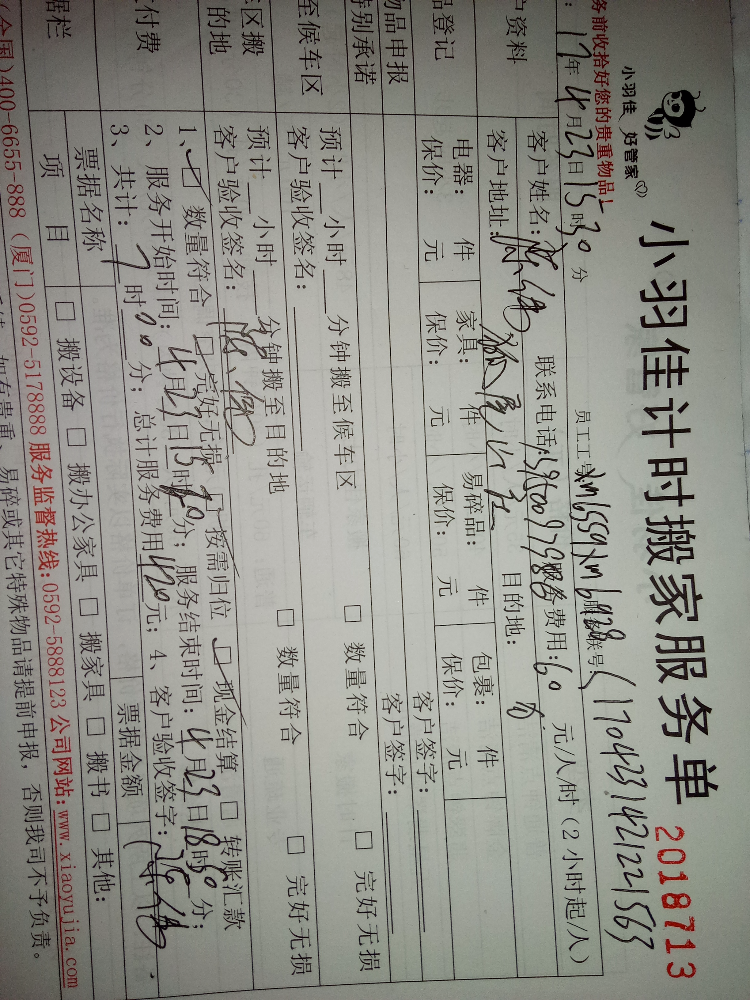 小羽佳 好管家
小羽佳计时搬家服务单
2018713
务前收拾好您的贵重物品!
员工工号 xm6559 xm6928 服务账号(170423142121563
17年4月23日15时30分
户资料
客户姓名: 联系电话:13950097986 服务费用:60 元/人/时(2小时起/人)
客户地址: 目的地:
品登记
电器: 件 家具: 件 易碎品: 件 包裹: 件
保价: 元 保价: 元 保价: 元 保价: 元
物品申报
客户签字:
特别承诺
客户签字:
至候车区
预计 小时 分钟搬至候车区 □ 数量符合 □ 完好无损
客户验收签名:
区搬
的地
预计 小时 分钟搬至目的地 □ 数量符合 □ 完好无损
客户验收签名:
付费
1、□ 数量符合 □ 完好无损 □ 按需归位 □ 现金结算 □ 转账汇款
2、服务开始时间:4月23日15时30分; 服务结束时间:4月23日18时30分;
3、共计:7时00分; 总计服务费用420元; 4、客户验收签字:
据栏
票据名称 票据金额
项 目 □ 搬设备 □ 搬办公家具 □ 搬家具 □ 搬书 □ 其他:
(全国)400-6655-888 (厦门)0592-5178888 服务监督热线:0592-5888123 公司网站:www.xiaoyujia.com
如有贵重、易碎或其它特殊物品请提前申报,否则我司不予负责。